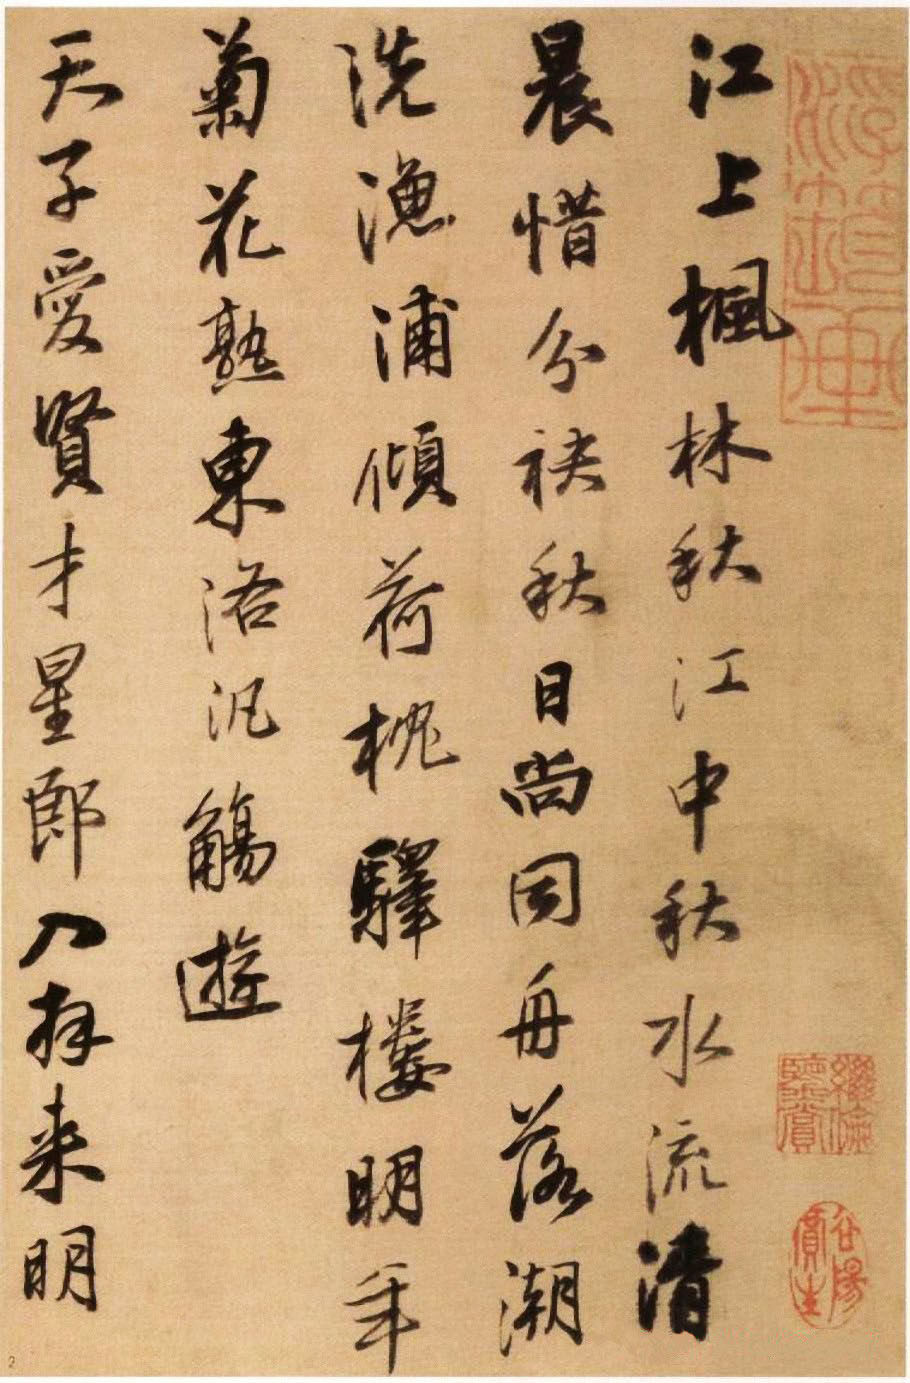 江上楓林秋江中秋水流清
晨惜分袂秋日尚同舟落潮
洗漁浦傾荷枕驛樓明年
菊花熟東洛汎觴遊
天子愛賢才星郎入拜来明
2